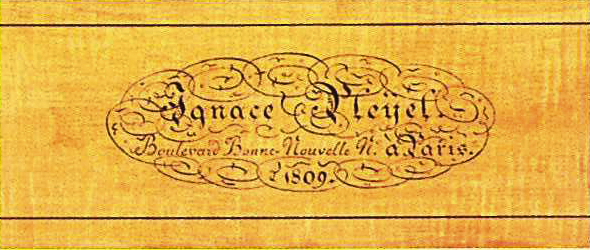 Ignace Pleÿel.
Boulevard Bonne-Nouvelle N. à Paris.
1809.